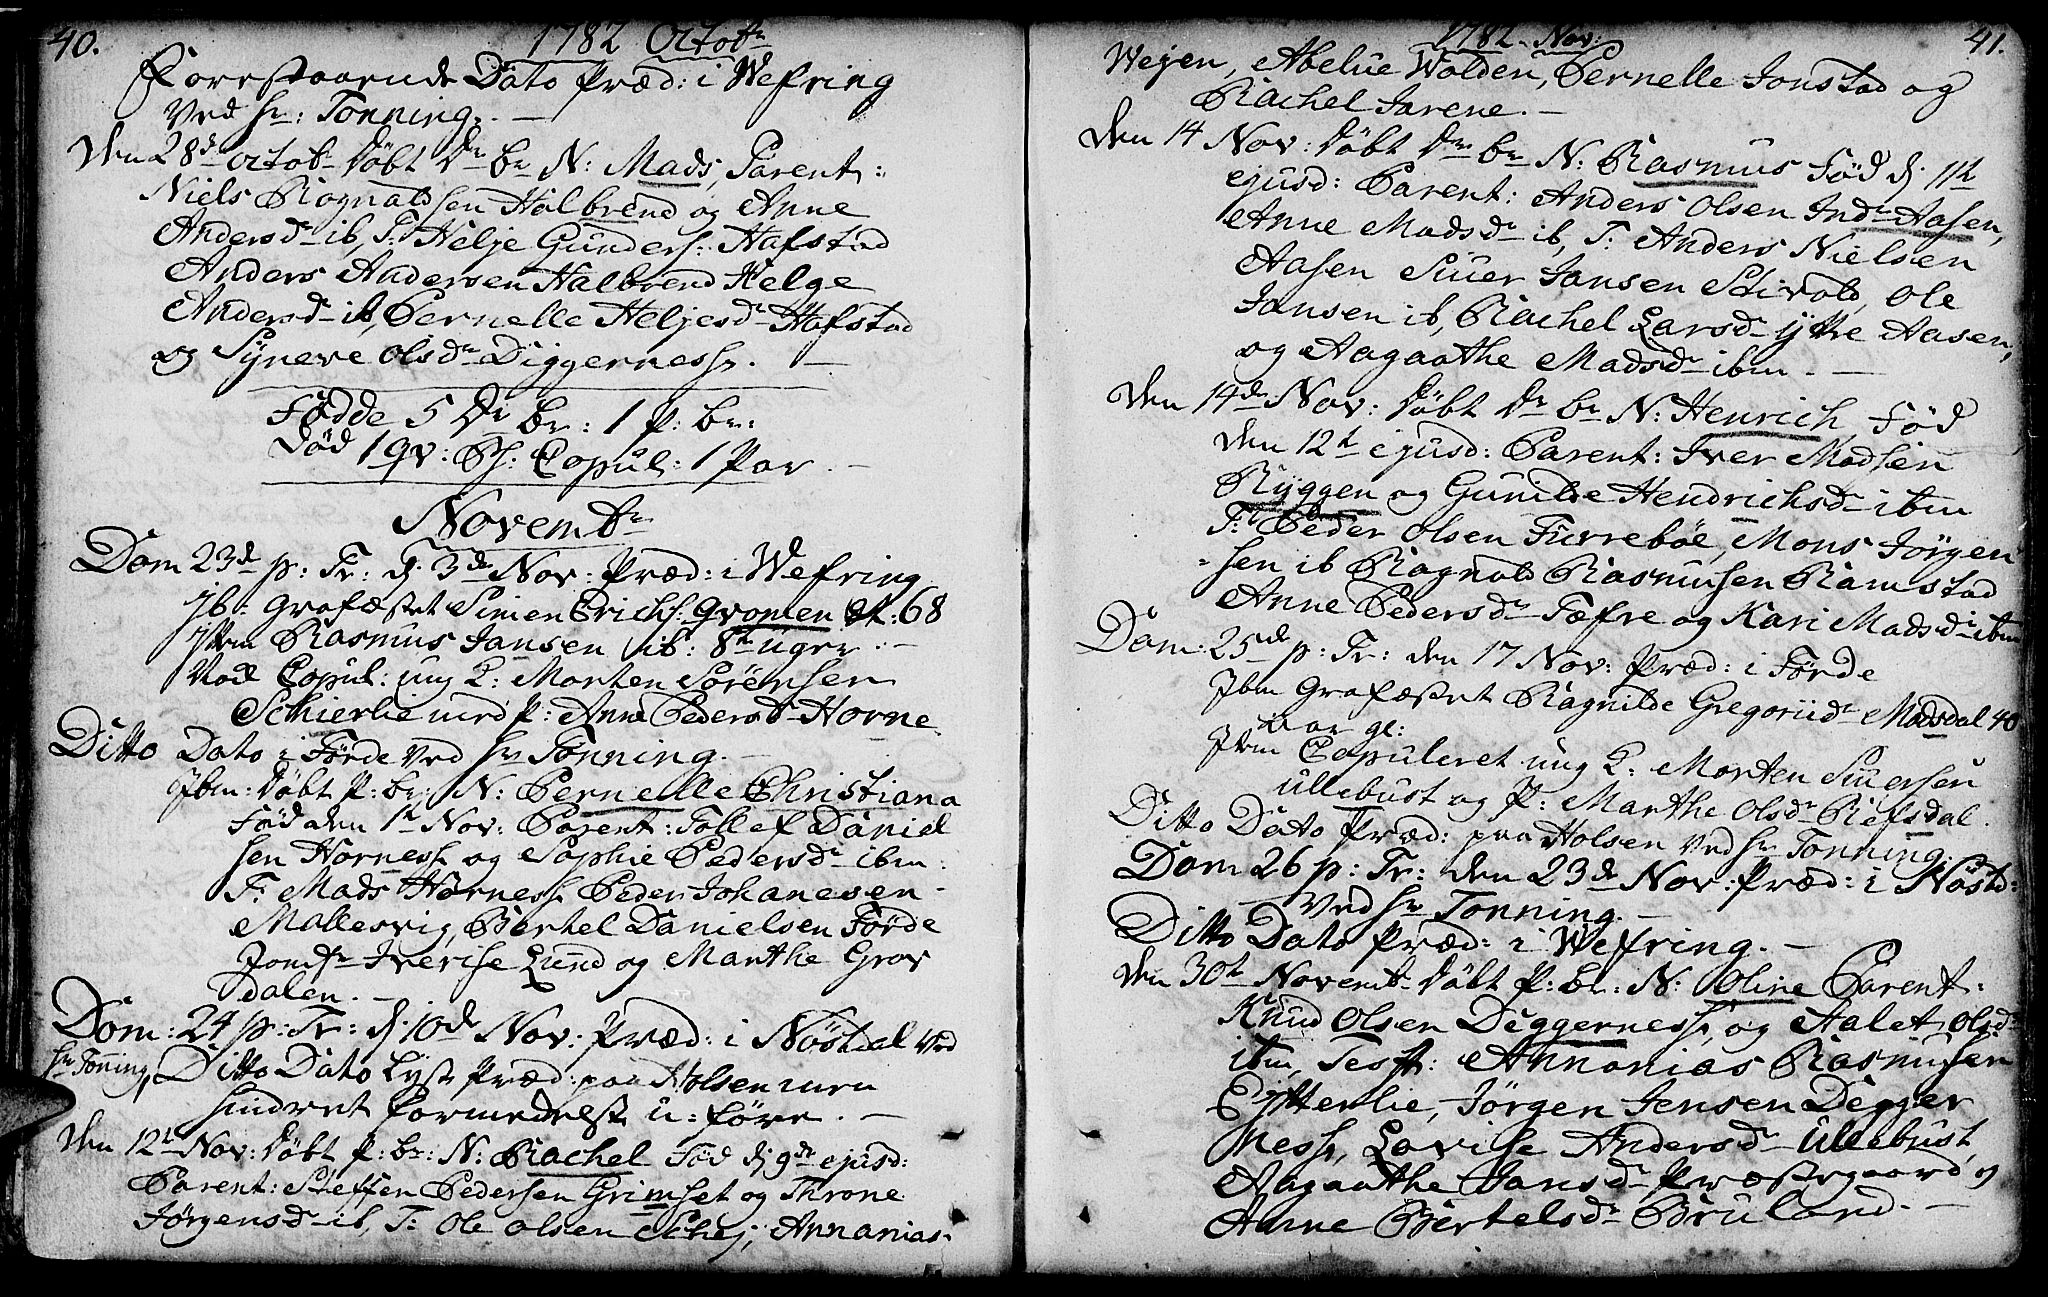 40.
1782 Octobr
Forestaaende Dato Præd: i Wefring
Ved Hr: Tonning. —
Den 28d Octobr Döbt Dr: br N: Mads, Parent:
Niels Rognaldsen Halbrend og Anne
Andersdr ib, T: Helje Gunders: Hafstad
Anders Andersen Halbrend Helge
Andersdr ib, Pernelle Heljesdr Hafstad
og Synneve Olsdr Diggerness. —
Födde 5 Dr br: 1 p: br:
Död 1 qv: Ps: Copul: 1 Par. —
Novembr
Dom 23d p: Tr: d: 3d Nov: Præd: i Wefring
ib: Grafæstet Simen Erichs: Qvomen æt: 68
item Rasmus Jansen ib: 8t uger. —
Vod Copul: ung K: Morten Sörensen
Schierlie med P: Anne Pedersd Horne
Ditto Dato i Förde ved Hr Tonning. —
Ibm: Döbt P: br: N: Pernelle Christiana
Föd den 1t Nov: Parent: Tollef Daniel
sen Horness og Sophie Pedersdr ibm.
T: Mads Horness Peder Johanesen
Mallesvig, Bertel Danielsen Förde
Jomfr Iverise Lund og Marthe Grov
dalen. —
Dom: 24 p: Tr: d: 10d Nov: Præd: i Nöstdal ved
Hr Tonning, Ditto Dato lyst Præd: paa Holsen men
hindret formedelst u: före. —
Den 12t Nov: Döbt P: br: N: Rachel Föd d: 9de ejusd:
Parent: Steffen Pedersen Grimset og Throne
Jörgensdr ib, T: Ole Olsen Schej, Annanias
1782 Nov:
41.
Wejen, Abelue Wolden, Pernelle Jonstad og
Rachel Jarene. —
Den 14 Nov: Döbt Dr br N: Rasmus Föd d: 11t
ejusd: Parent: Anders Olsen Indr Aasen,
Anne Madsdr ib, T: Anders Nielsen
Aasen Siuer Jansen Stivold, Ole
Jansen ib, Rachel Larsdr ytre Aasen,
og Aagaathe Madsdr ibm. —
Den 14de Nov: Döbt Dr br N: Henrich Föd
den 12t ejusd: Parent: Iver Madsen
Ryggen og Gunilde Hendrichsdr ibm
T: Peder Olsen Furreböe, Mons Jörgen
sen ib Ragnald Rasmusen Ramstad
Anne Pedersdr Tefre og Kari Madsdr ibm
Dom: 25de p: Tr: den 17 Nov: Præd: i Förde
Ibm Grafæstet Ragnilde Gregoriidr Madsdal 40
aar gl:
Item Copuleret ung K: Morten Siuersen
Ullebust og P: Marthe Olsdr Refsdal.
Ditto Dato Præd: paa Holsen ved Hr Tonning.
Dom 26 p: Tr: den 23de Nov: Præd: i Nöstd:
Ved Hr Tonning. —
Ditto Dato Præd: i Wefring. —
Den 30t Novembr Döbt P: br: N: Oline Parent:
Knud Olsen Diggerness, og Aalet Olsdr
ibm, Test: Annanias Rasmusen
Eytterlie, Jörgen Jensen Degger
Ness, Lovise Andersdr Ullebust,
Aagaathe Jansdr Præstegaard, og
Anne Bertelsdr Bruland. —